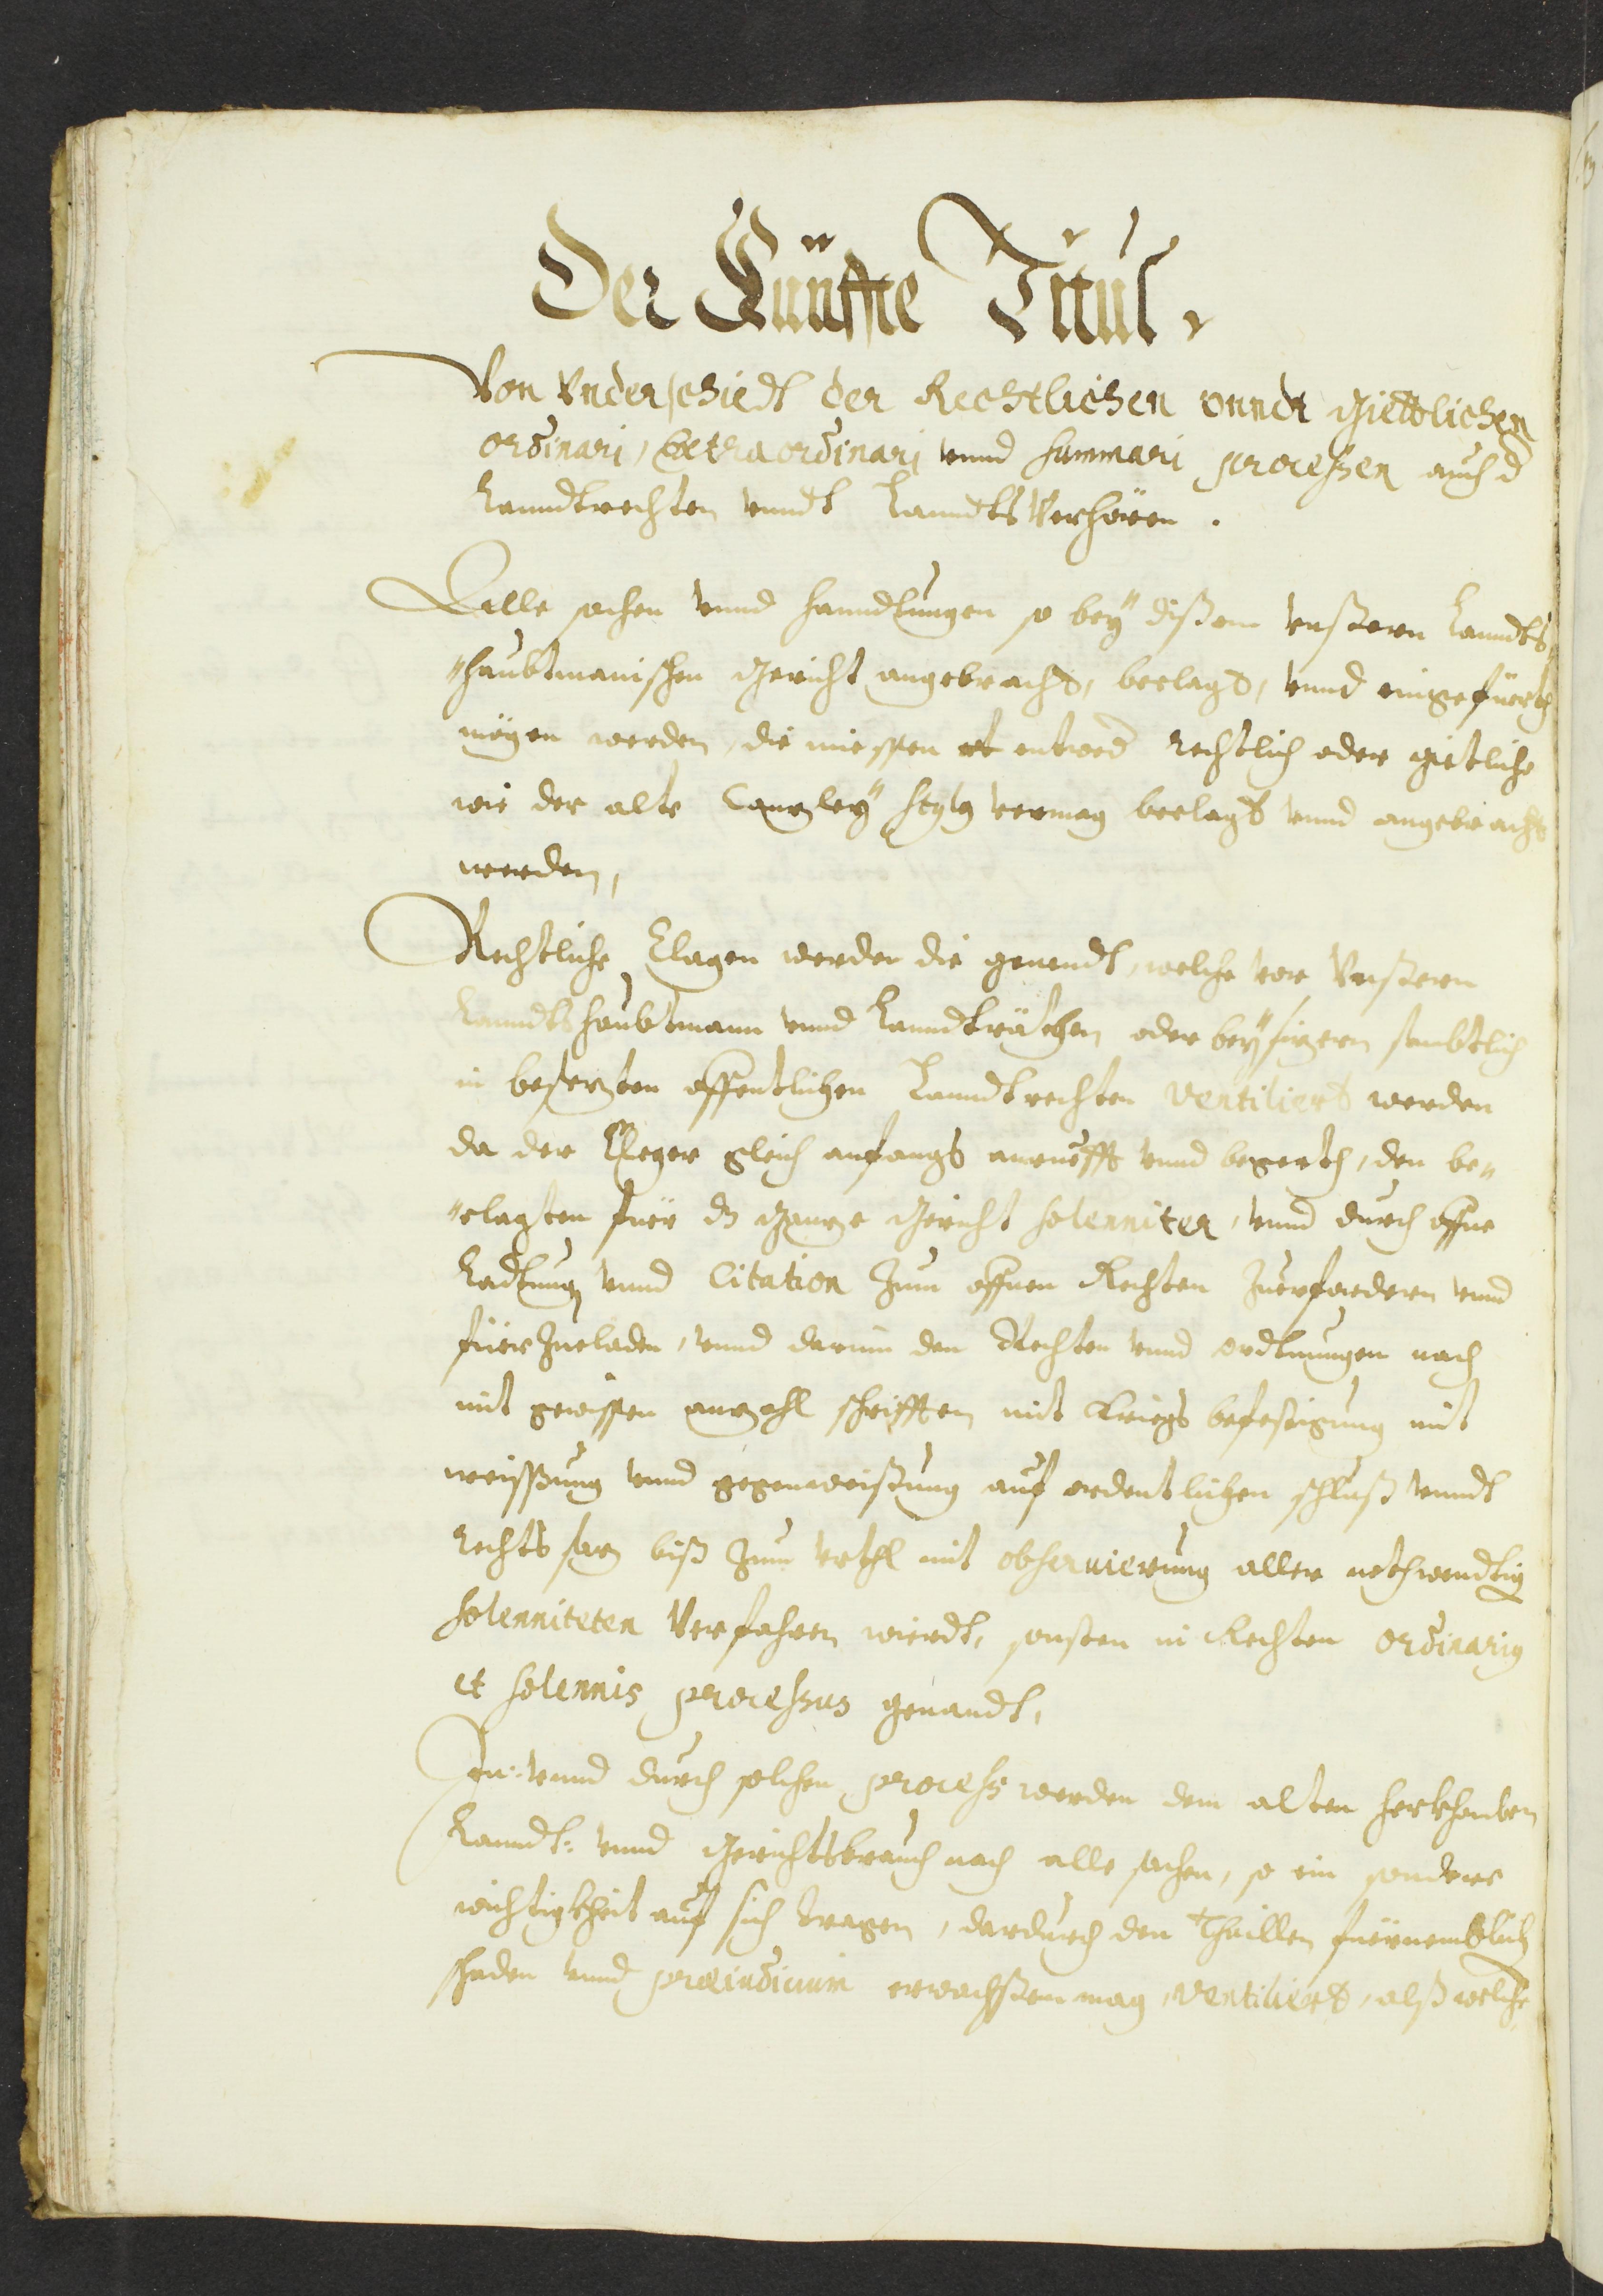 Der Fünffte Titul.
Von Vnderschiedt der Rechtlichen vnndt giettlichen
ordinari, Extraordinari vnnd summari processen auch d
Lanndtrechten vnndt Lanndts Verhören.
Alle sachen vnnd hanndlungen so bey disem vnsern Lanndts
"haubtmanischen Gericht angebracht, beclagt, vnnd eingefüerth
mögen werden, die miessen entwed rechtlich oder gietliche
wie der alte Canzley stylus vermag beclagt vnnd angebracht
werden,
Rechtliche Clagen werden die genendt, welche vor Vnsern
Lanndtshaubtmann vnnd Lanndträthen oder beysizern sambtlich
in besezten offentlichen Lanndtrechten ventiliert werden
da der Cleger gleich anfangs anruefft vnnd begerth, den be"
"clagten fuer dz ganze Gericht solenniter, vnnd durch offne
Ladtung vnnd Citation zum offnen Rechten zuerfordern vnnd
fürzueladen, vnnd darein den Rechten vnnd ordtnungen nach
mit gewissen anzahl schrifften mit kriegs befestigung mit
weissung vnnd gegenweisung auf ordentlichen schluss vnndt
rechtsaz biss zum vrthl mit obseruierung aller nothwendtig
solenniteten Verfahren wierdt, sonsten in Rechten ordinarius
et solennis processus genandt,
In: vnnd durch solchen process werden dem alten herkhomben
Lanndt: vnnd gerichtsbrauch nach alle sachen, so ein sondere
wichtigkheit auf sich tragen, dardurch den Thaillen fürnemblich
schaden vnnd praeiudicium erwachssen mag, ventiliert, alss welche